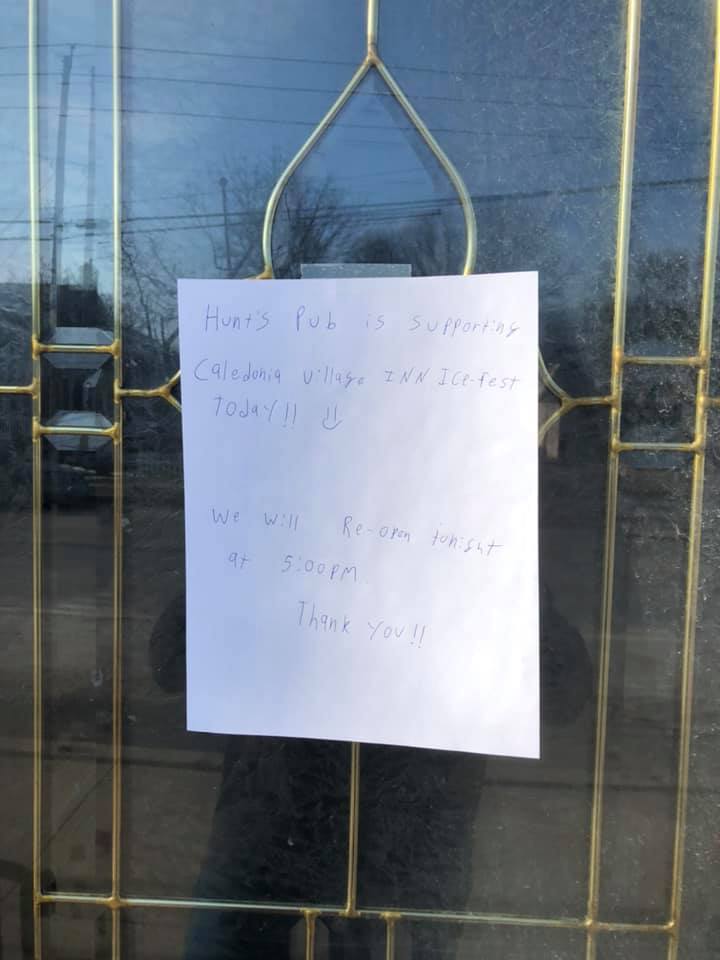 Hunt's Pub is supporting
Caledonia Village INN ICe-fest
Today!! :)
We will Re-open tonight
at 5:00PM
Thank you!!